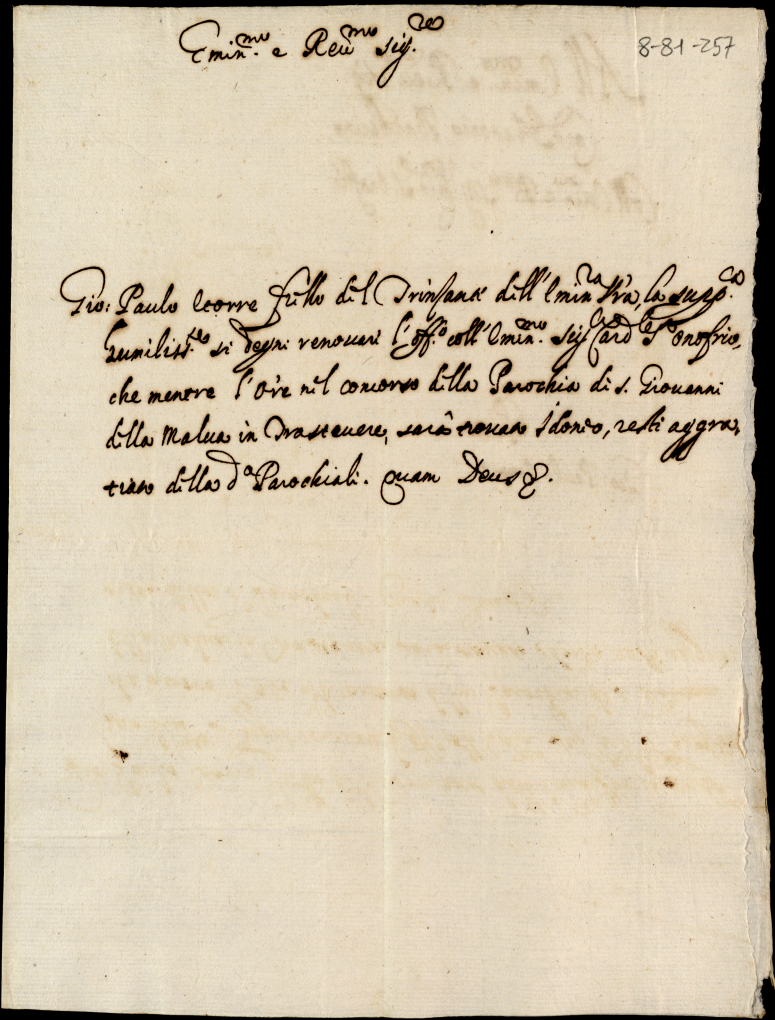 Emin.mo e Reu.mo sig.re
8-81-257
Gio: Paulo fr'llo del Trinsante dell'Emin.za V'ra, la supp.ca
humiliss.te si degni renouare l'off.o coll'Emin.mo sig.r Card.le S.to onofrio,
che mentre l'Or'e nel concorso della Parochia di s. Giouanni
della Malua in Trasteuere, sarà trouato Idoneo, resti aggra,
tiato della d.a Parochiale. Quam Deus &.